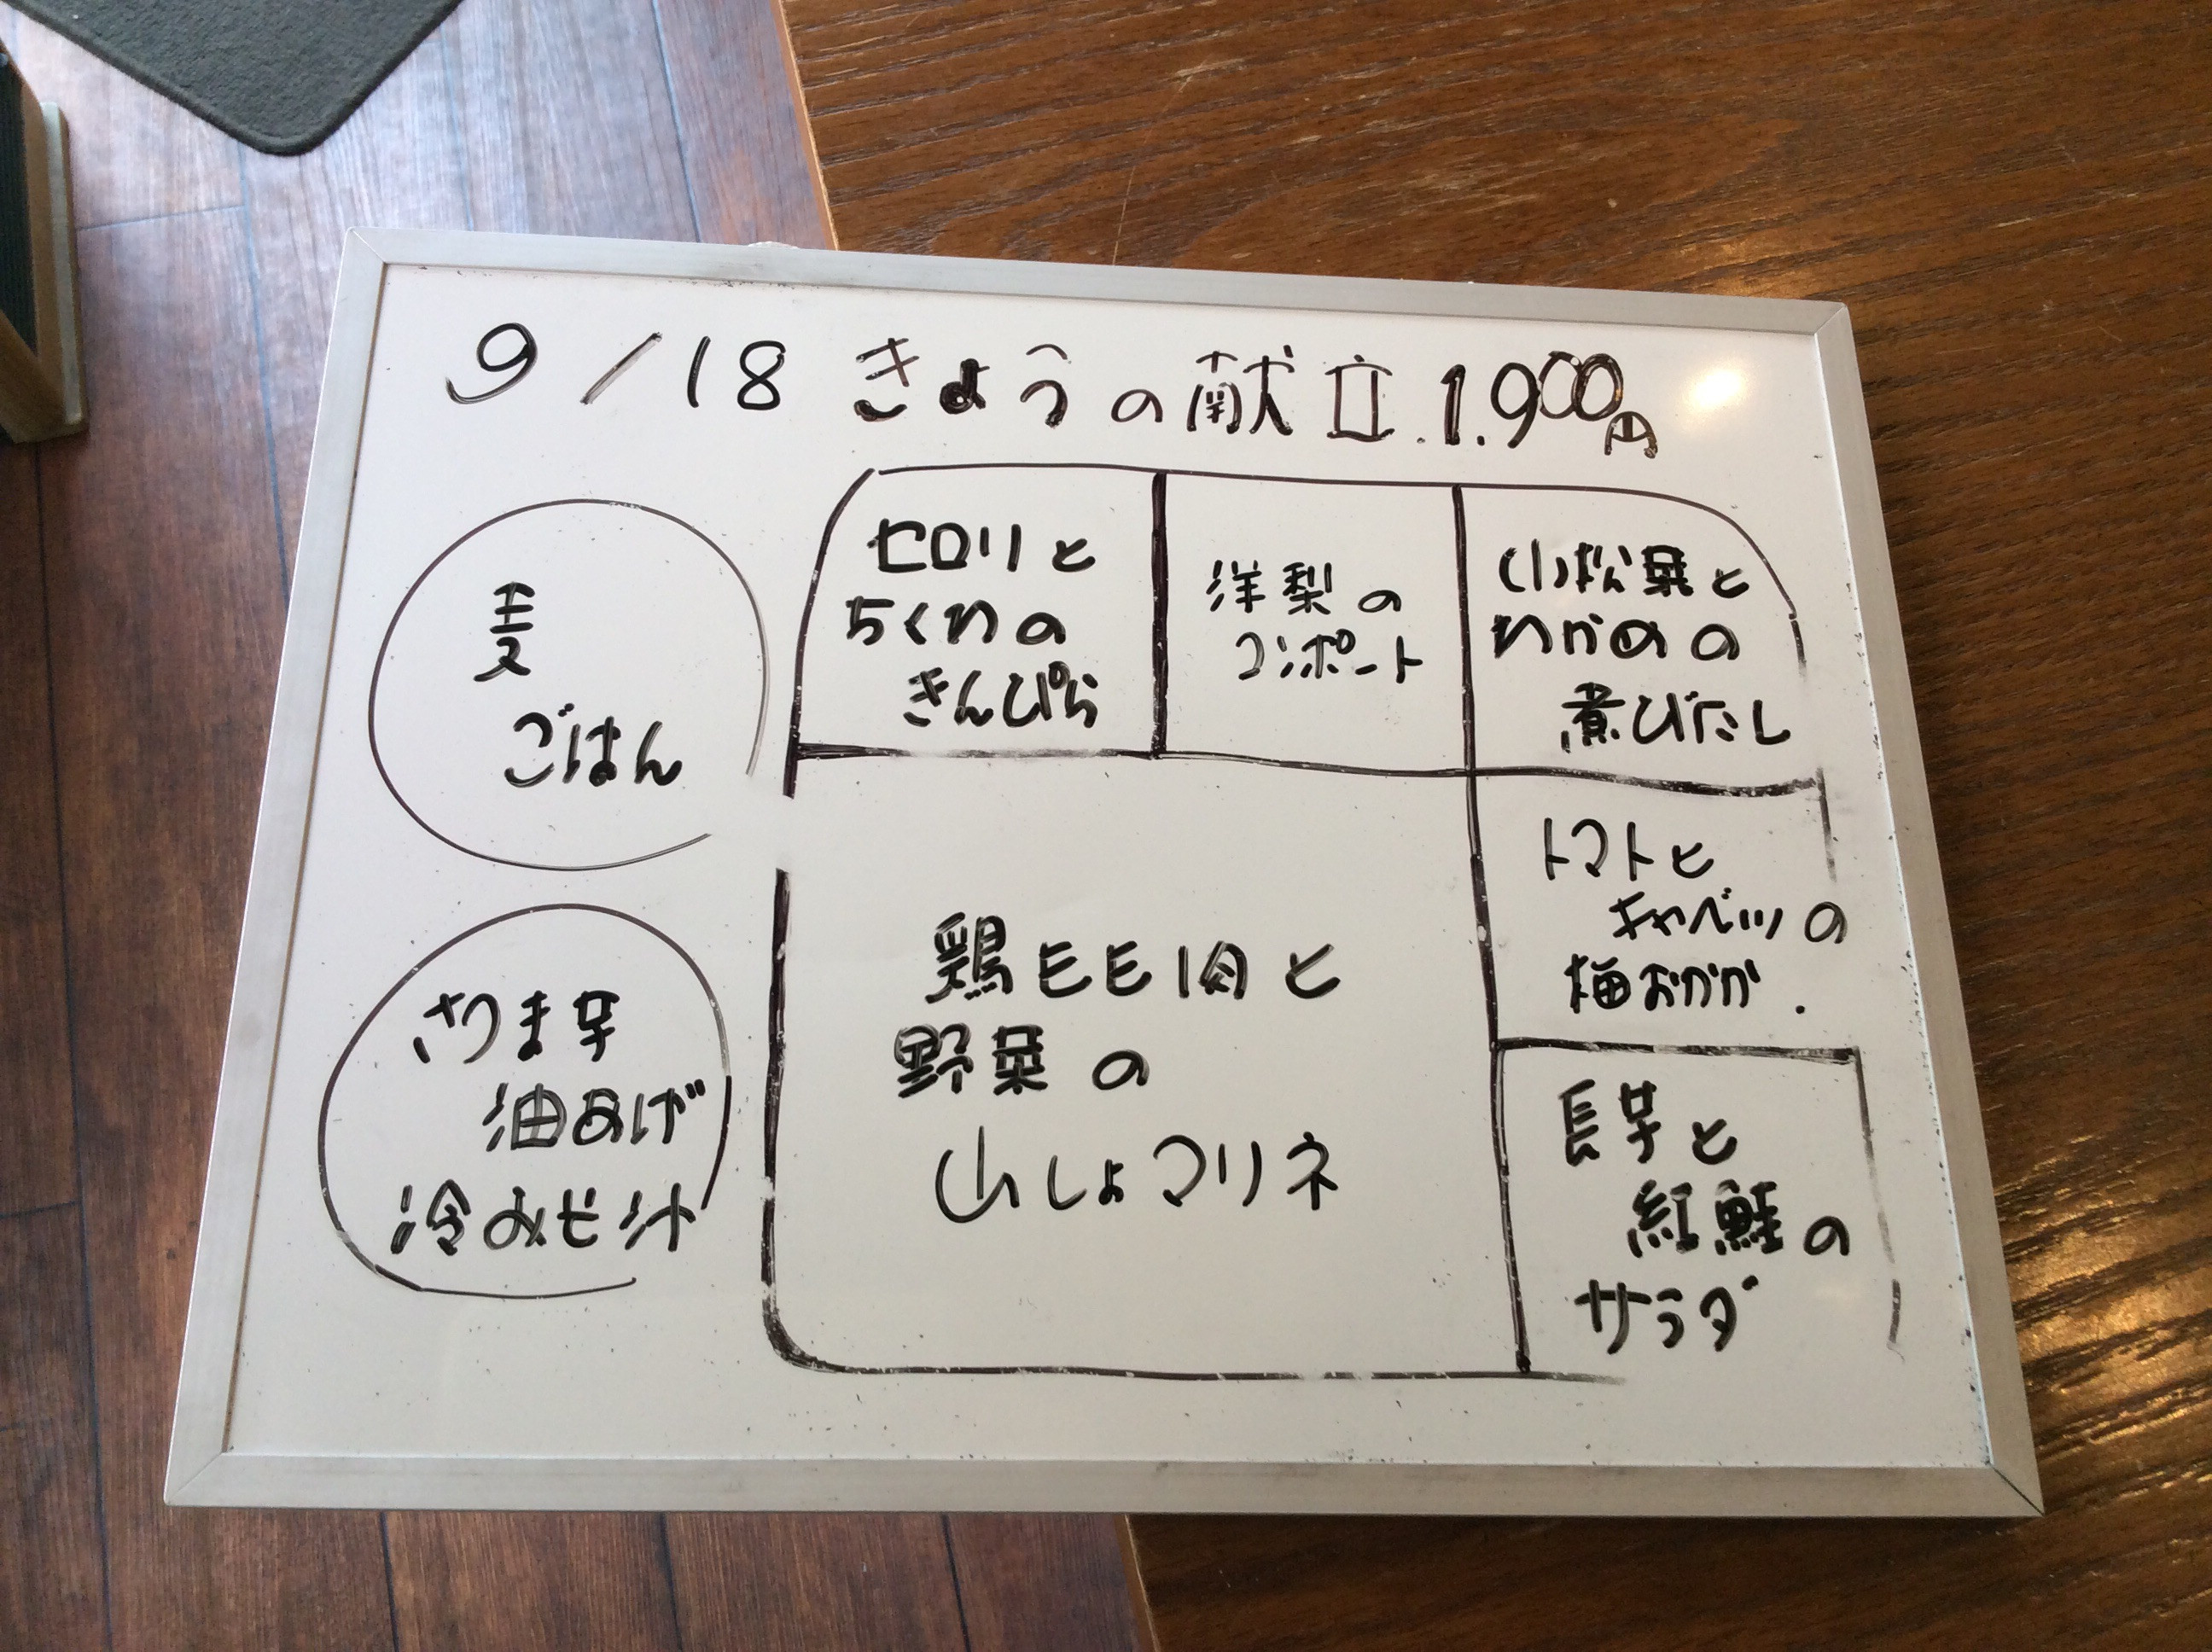 9/18 きょうの献立 1.900円
麦
ごはん
さつま芋
油あげ
冷みそ汁
セロリと
ちくわの
きんぴら
洋梨の
コンポート
小松菜と
わかめの
煮びたし
鶏モモ肉と
野菜の
山しょマリネ
トマトと
キャベツの
梅おかか.
長芋と
紅鮭の
サラダ